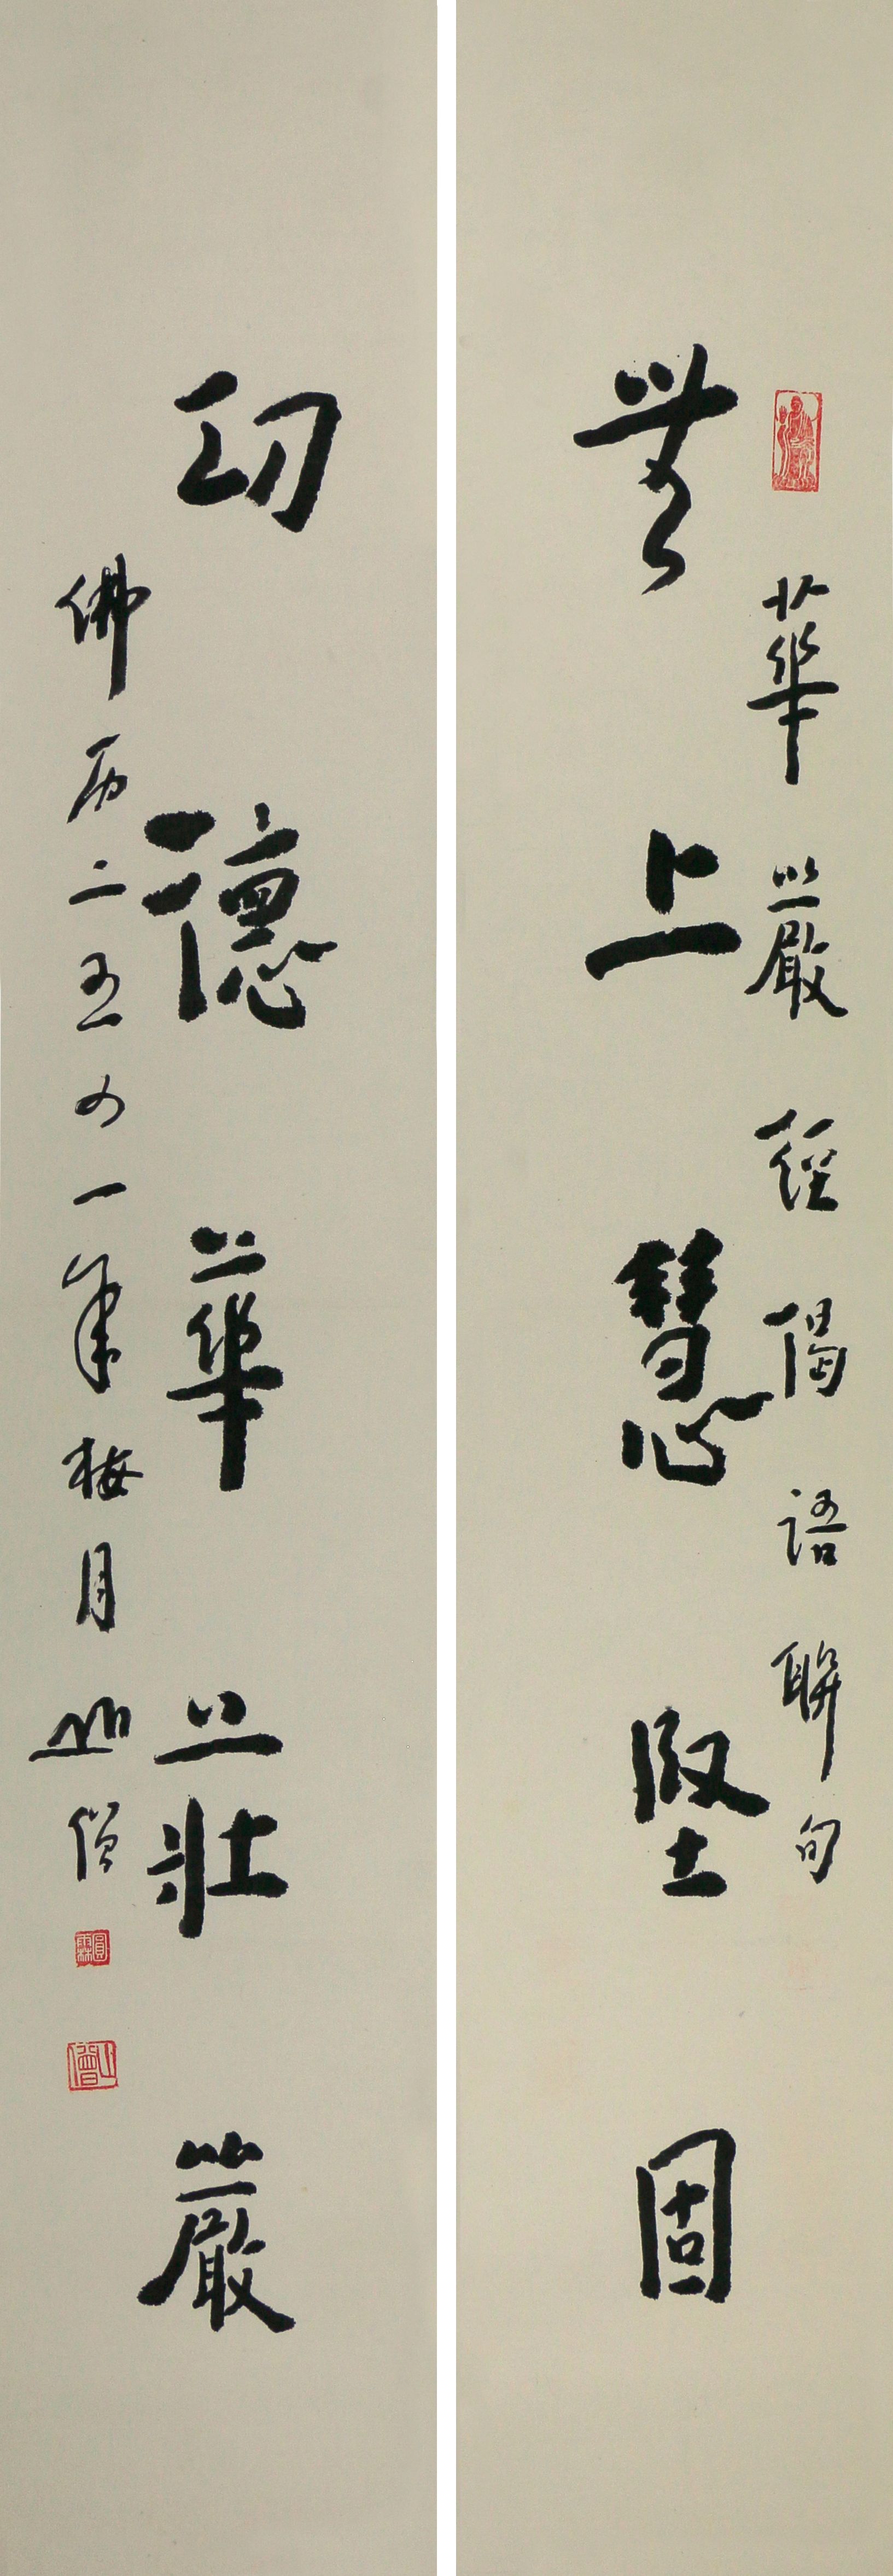 華嚴經偈語聯句
無上慧堅固
功德華莊嚴
佛历二五四一年梅月
僧
圓霖
僧